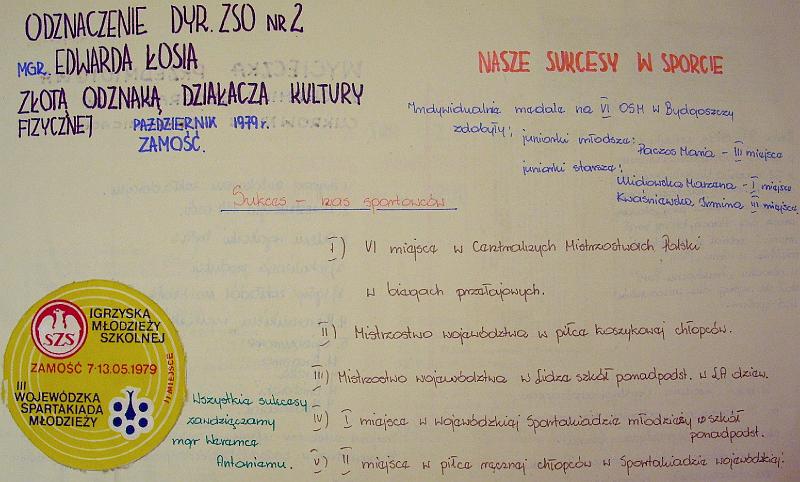 ODZNACZENIE DYR. ZSO NR 2
MGR. EDWARDA ŁOSIA
ZŁOTĄ ODZNAKĄ DZIAŁACZA KULTURY
FIZYCZNEJ PAŹDZIERNIK 1979 r.
ZAMOŚĆ.
NASZE SUKCESY W SPORCIE
Indywidualnie medale na VI OSM w Bydgoszczy
zdobyły; juniorki młodsze:
Paczos Maria - III miejsce
juniorki starsze:
Widowska Marzena - I miejsce
Kwaśniewska Irmina III miejsce.
Sukces - nas sportowców
I) VI miejsce w Centralnych Mistrzostwach Polski
w biegach przełajowych.
II) Mistrzostwo województwa w piłce koszykowej chłopców.
III) Mistrzostwo województwa w Lidze szkół ponadpodst. w LA dziew.
IV) I miejsce w wojewódzkiej Spartakiadzie młodzieży szkół
ponadpodst.
V) II miejsce w piłce ręcznej chłopców w Spartakiadzie wojewódz.
Wszystkie sukcesy
zawdzięczamy
mgr
Antoniemu.
IGRZYSKA
MŁODZIEŻY
SZKOLNEJ
SZS
ZAMOŚĆ 7-13.05.1979
III
WOJEWÓDZKA
SPARTAKIADA
MŁODZIEŻY
II MIEJSCE